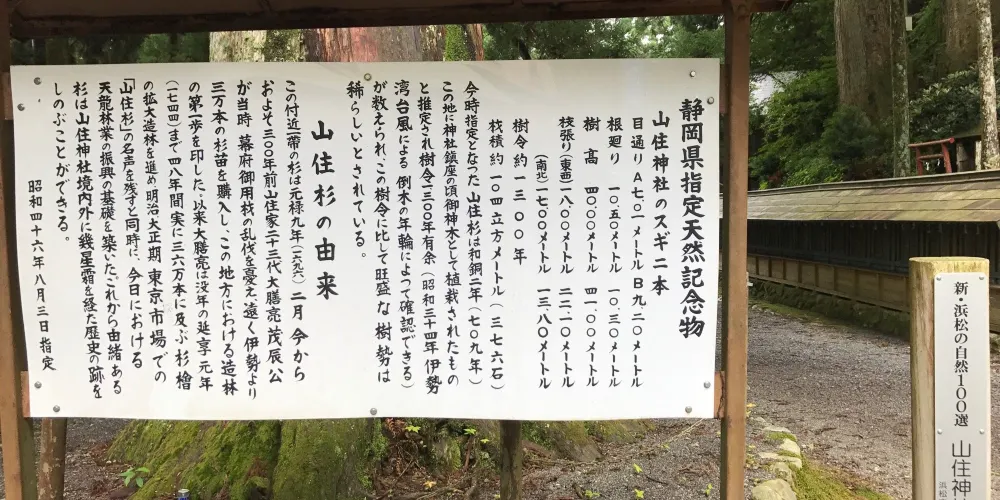 静岡県指定天然記念物
山住神社のスギ二本
目通り A七・〇一メートル B九・二〇メートル
根廻り 一〇・五〇メートル 一〇・三〇メートル
樹高 四〇・〇〇メートル 四一・〇〇メートル
枝張り(東西)一八・〇〇メートル 二二・一〇メートル
(南北)一七・〇〇メートル 一三・八〇メートル
樹令約一三〇〇年
材積 約一〇四立方メートル(三七六石)
今時指定となった山住杉は和銅二年(七〇九年)
この地に神社鎮座の頃御神木として植栽されたもの
と推定され樹令一三〇〇年有余(昭和三十四年伊勢
湾台風による倒木の年輪によって確認できる)
が数えられ、この樹令に比して旺盛な樹勢は
稀らしいとされている。
山住杉の由来
この付近一帯の杉は元禄九年(一六九六)二月今から
およそ三〇〇年前山住家二十三代大膳亮茂辰公
が当時幕府御用材の乱伐を憂え、遠く伊勢より
三万本の杉苗を購入し、この地方における造林
の第一歩を印した。以来大膳亮は没年の延享元年
(一七四四)まで四八年間実に三六万本に及ぶ杉檜
の拡大造林を進め明治大正期東京市場での
「山住杉」の名声を残すと同時に、今日における
天龍林業の振興の基礎を築いた。これから由緒ある
杉は山住神社境内外に幾星霜を経た歴史の跡を
しのぶことができる。
昭和四十六年八月三日指定
新・浜松の自然100選
山住神
浜松